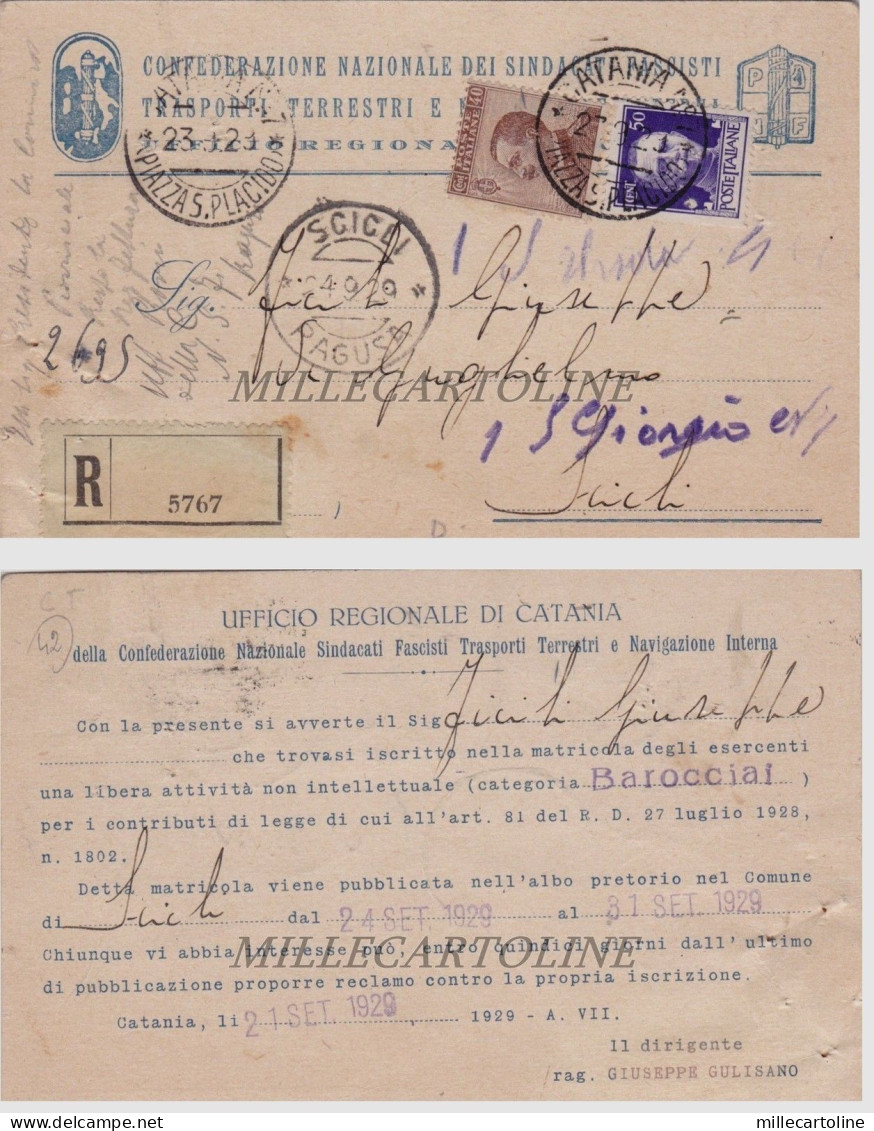 CONFEDERAZIONE NAZIONALE DEI SINDACATI FASCISTI
TRASPORTI TERRESTRI E
UFFICIO REGIONALE
P N F
CATANIA
23.9.29
PIAZZA S. PLACIDO
CENT 40
POSTE ITALIANE
CENT. 50
CATANIA
PIAZZA S. PLACIDO
SCICLI
24.9.29
RAGUSA
Sig. Giuseppe
di Guglielmo
MILLECARTOLINE
2695
1 S Giorgio
Scicli
R
5767
CT
42
UFFICIO REGIONALE DI CATANIA
della Confederazione Nazionale Sindacati Fascisti Trasporti Terrestri e Navigazione Interna
Con la presente si avverte il Sig Giuseppe
che trovasi iscritto nella matricola degli esercenti
una libera attività non intellettuale (categoria Barocciai )
per i contributi di legge di cui all'art. 81 del R. D. 27 luglio 1928,
n. 1802.
Detta matricola viene pubblicata nell'albo pretorio nel Comune
di Scicli dal 24 SET. 1929 al 31 SET. 1929
Chiunque vi abbia interesse può, entro quindici giorni dall'ultimo
MILLECARTOLINE
di pubblicazione proporre reclamo contro la propria iscrizione.
Catania, li 21 SET. 1929 1929 - A. VII.
Il dirigente
rag. GIUSEPPE GULISANO
www.millecartoline.com
millecartoline